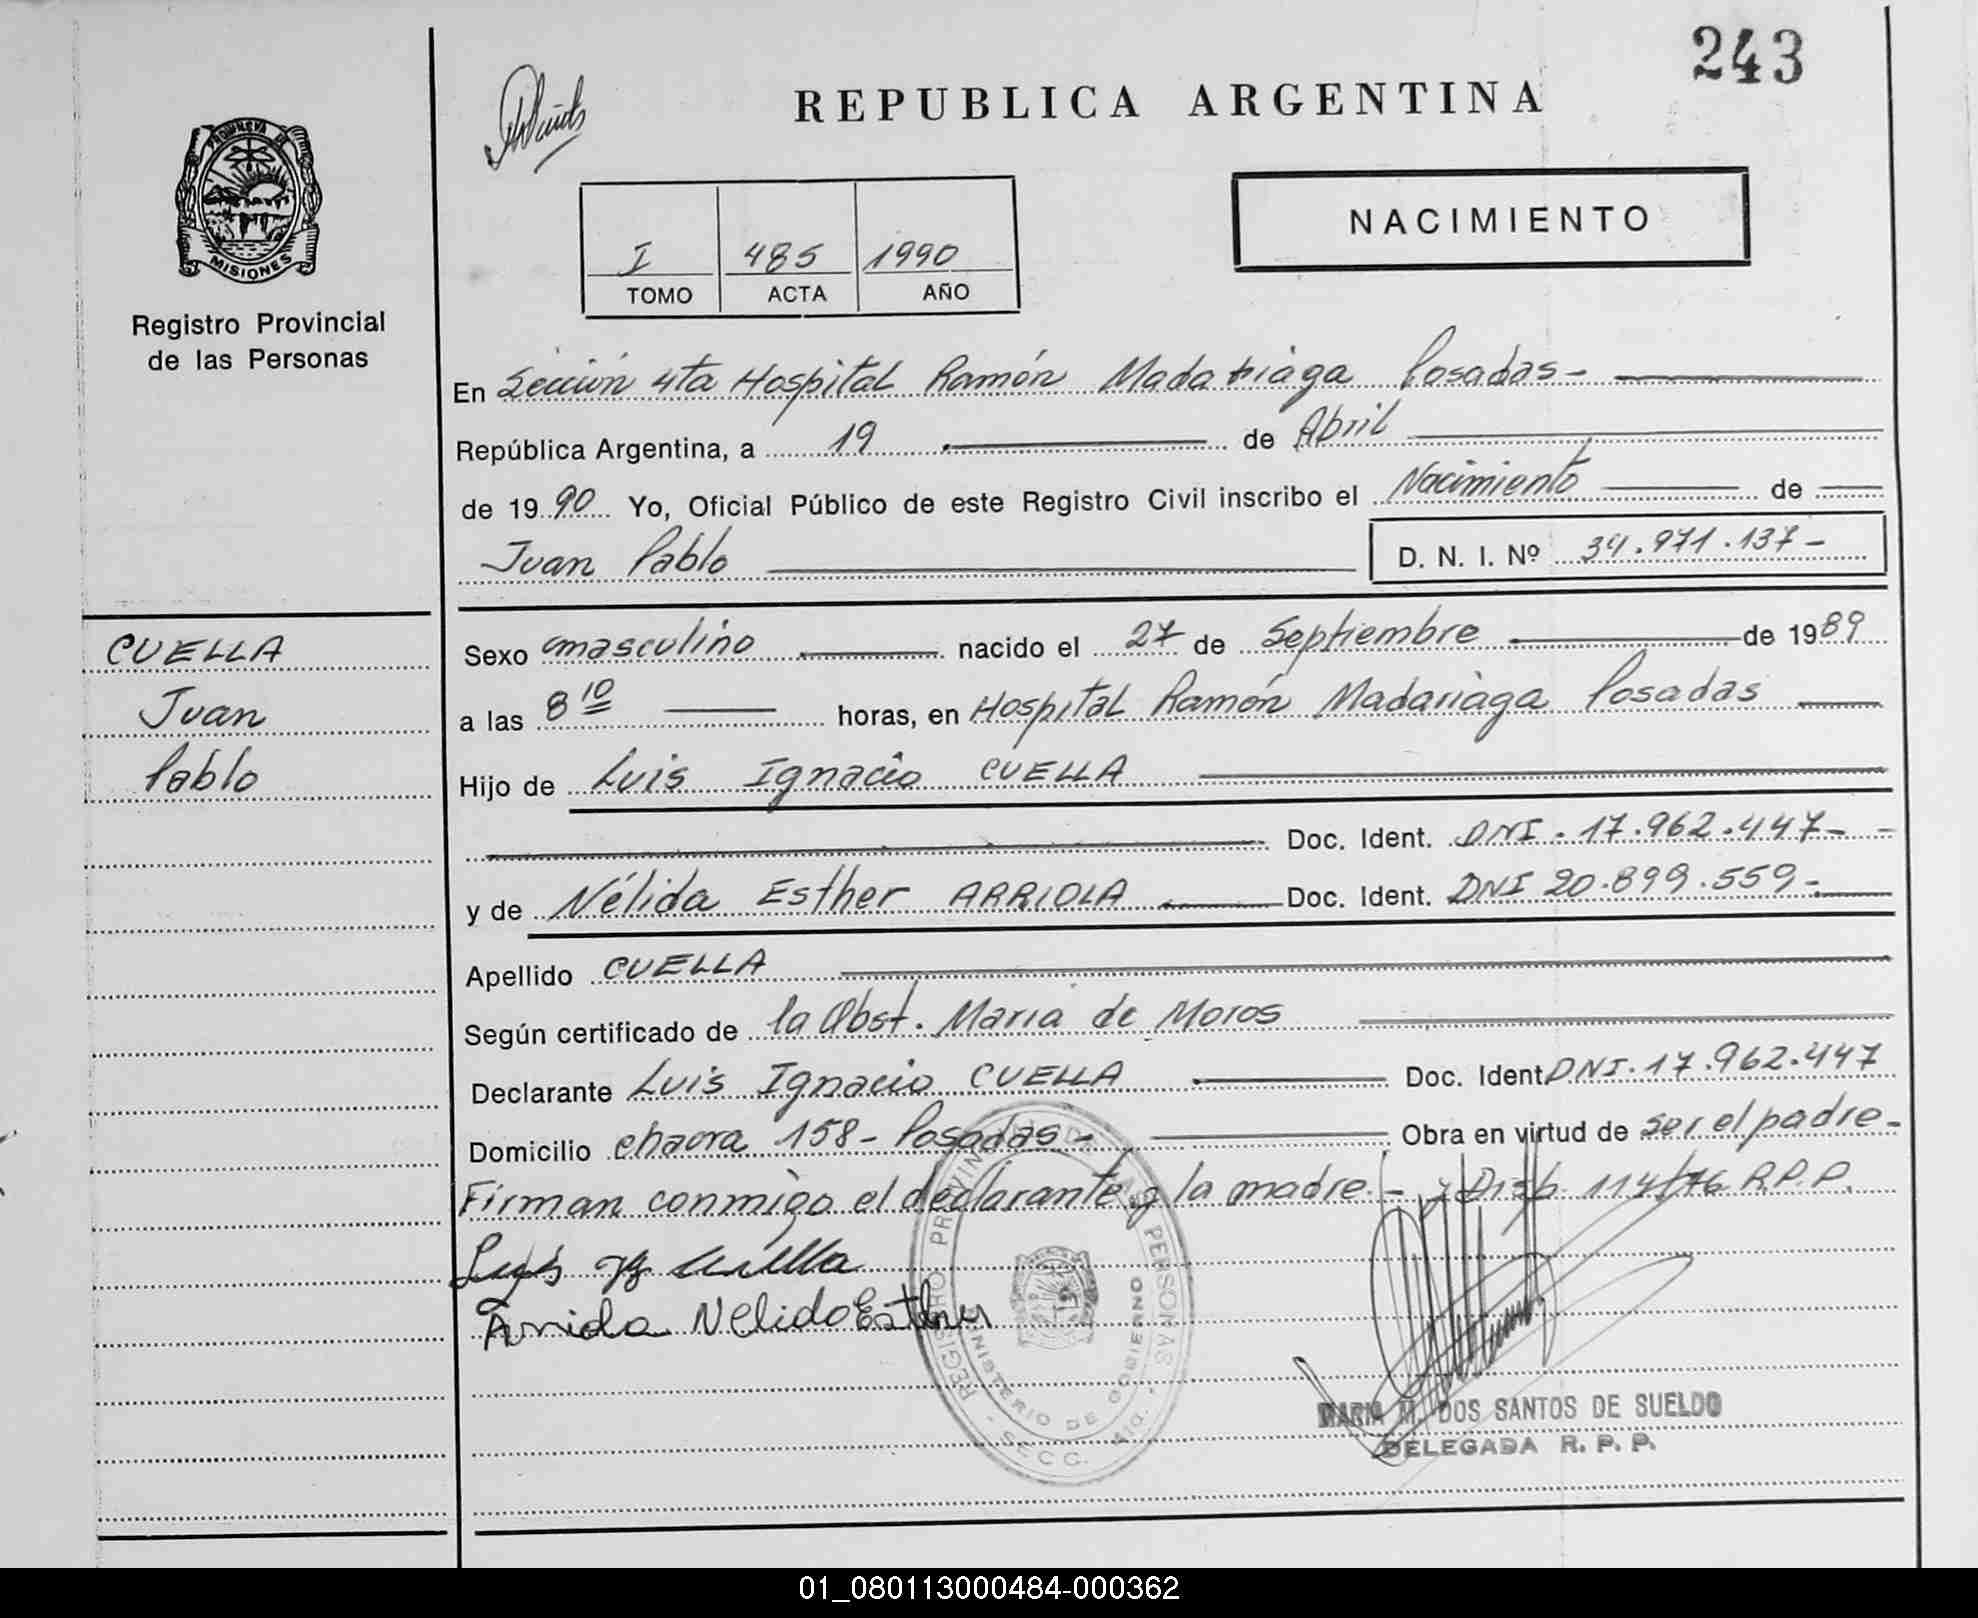 243
REPUBLICA ARGENTINA
NACIMIENTO
I 485 1990
TOMO ACTA AÑO
PROVINCIA DE
MISIONES
Registro Provincial
de las Personas
En Sección 4ta Hospital Ramón Madariaga Posadas-
República Argentina, a 19 de Abril
de 1990 Yo, Oficial Público de este Registro Civil inscribo el Nacimiento de
Juan Pablo D. N. I. Nº 34.971.137-
CUELLA
Juan
Pablo
Sexo masculino nacido el 27 de Septiembre de 1989
a las 8 10 horas, en Hospital Ramón Madariaga Posadas
Hijo de Luis Ignacio CUELLA
Doc. Ident. DNI. 17.962.447-
y de Nélida Esther ARRIOLA Doc. Ident. DNI 20.899.559-
Apellido CUELLA
Según certificado de la Obst. Maria de Moros
Declarante Luis Ignacio CUELLA Doc. Ident DNI. 17.962.447
Domicilio chacra 158- Posadas- Obra en virtud de ser el padre-
Firman conmigo el declarante y la madre.- y Disp. 114/76 R.P.P.
Luis Cuella
Arriola Nelida Esther
REGISTRO PROVINCIAL DE LAS PERSONAS
MINISTERIO DE GOBIERNO
SECC. 4ta.
MARIA M. DOS SANTOS DE SUELDO
DELEGADA R. P. P.
01_080113000484-000362